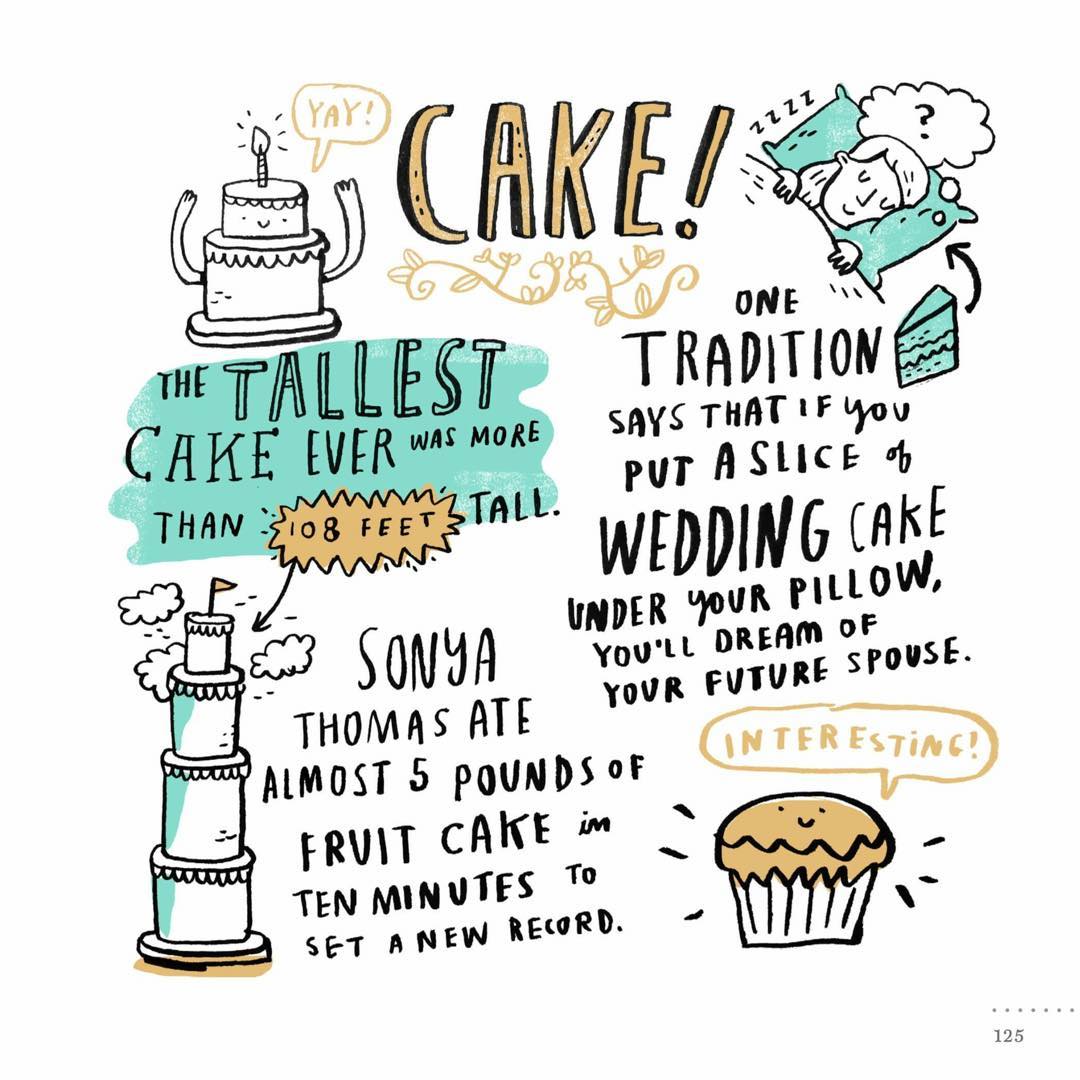 YAY!
CAKE!
ZZZZ
?
THE TALLEST
CAKE EVER WAS MORE
THAN 108 FEET TALL.
ONE
TRADITION
SAYS THAT IF YOU
PUT A SLICE of
WEDDING CAKE
UNDER YOUR PILLOW,
YOU'LL DREAM OF
YOUR FUTURE SPOUSE.
SONYA
THOMAS ATE
ALMOST 5 POUNDS OF
FRUIT CAKE in
TEN MINUTES TO
SET A NEW RECORD.
INTERESTING!
125